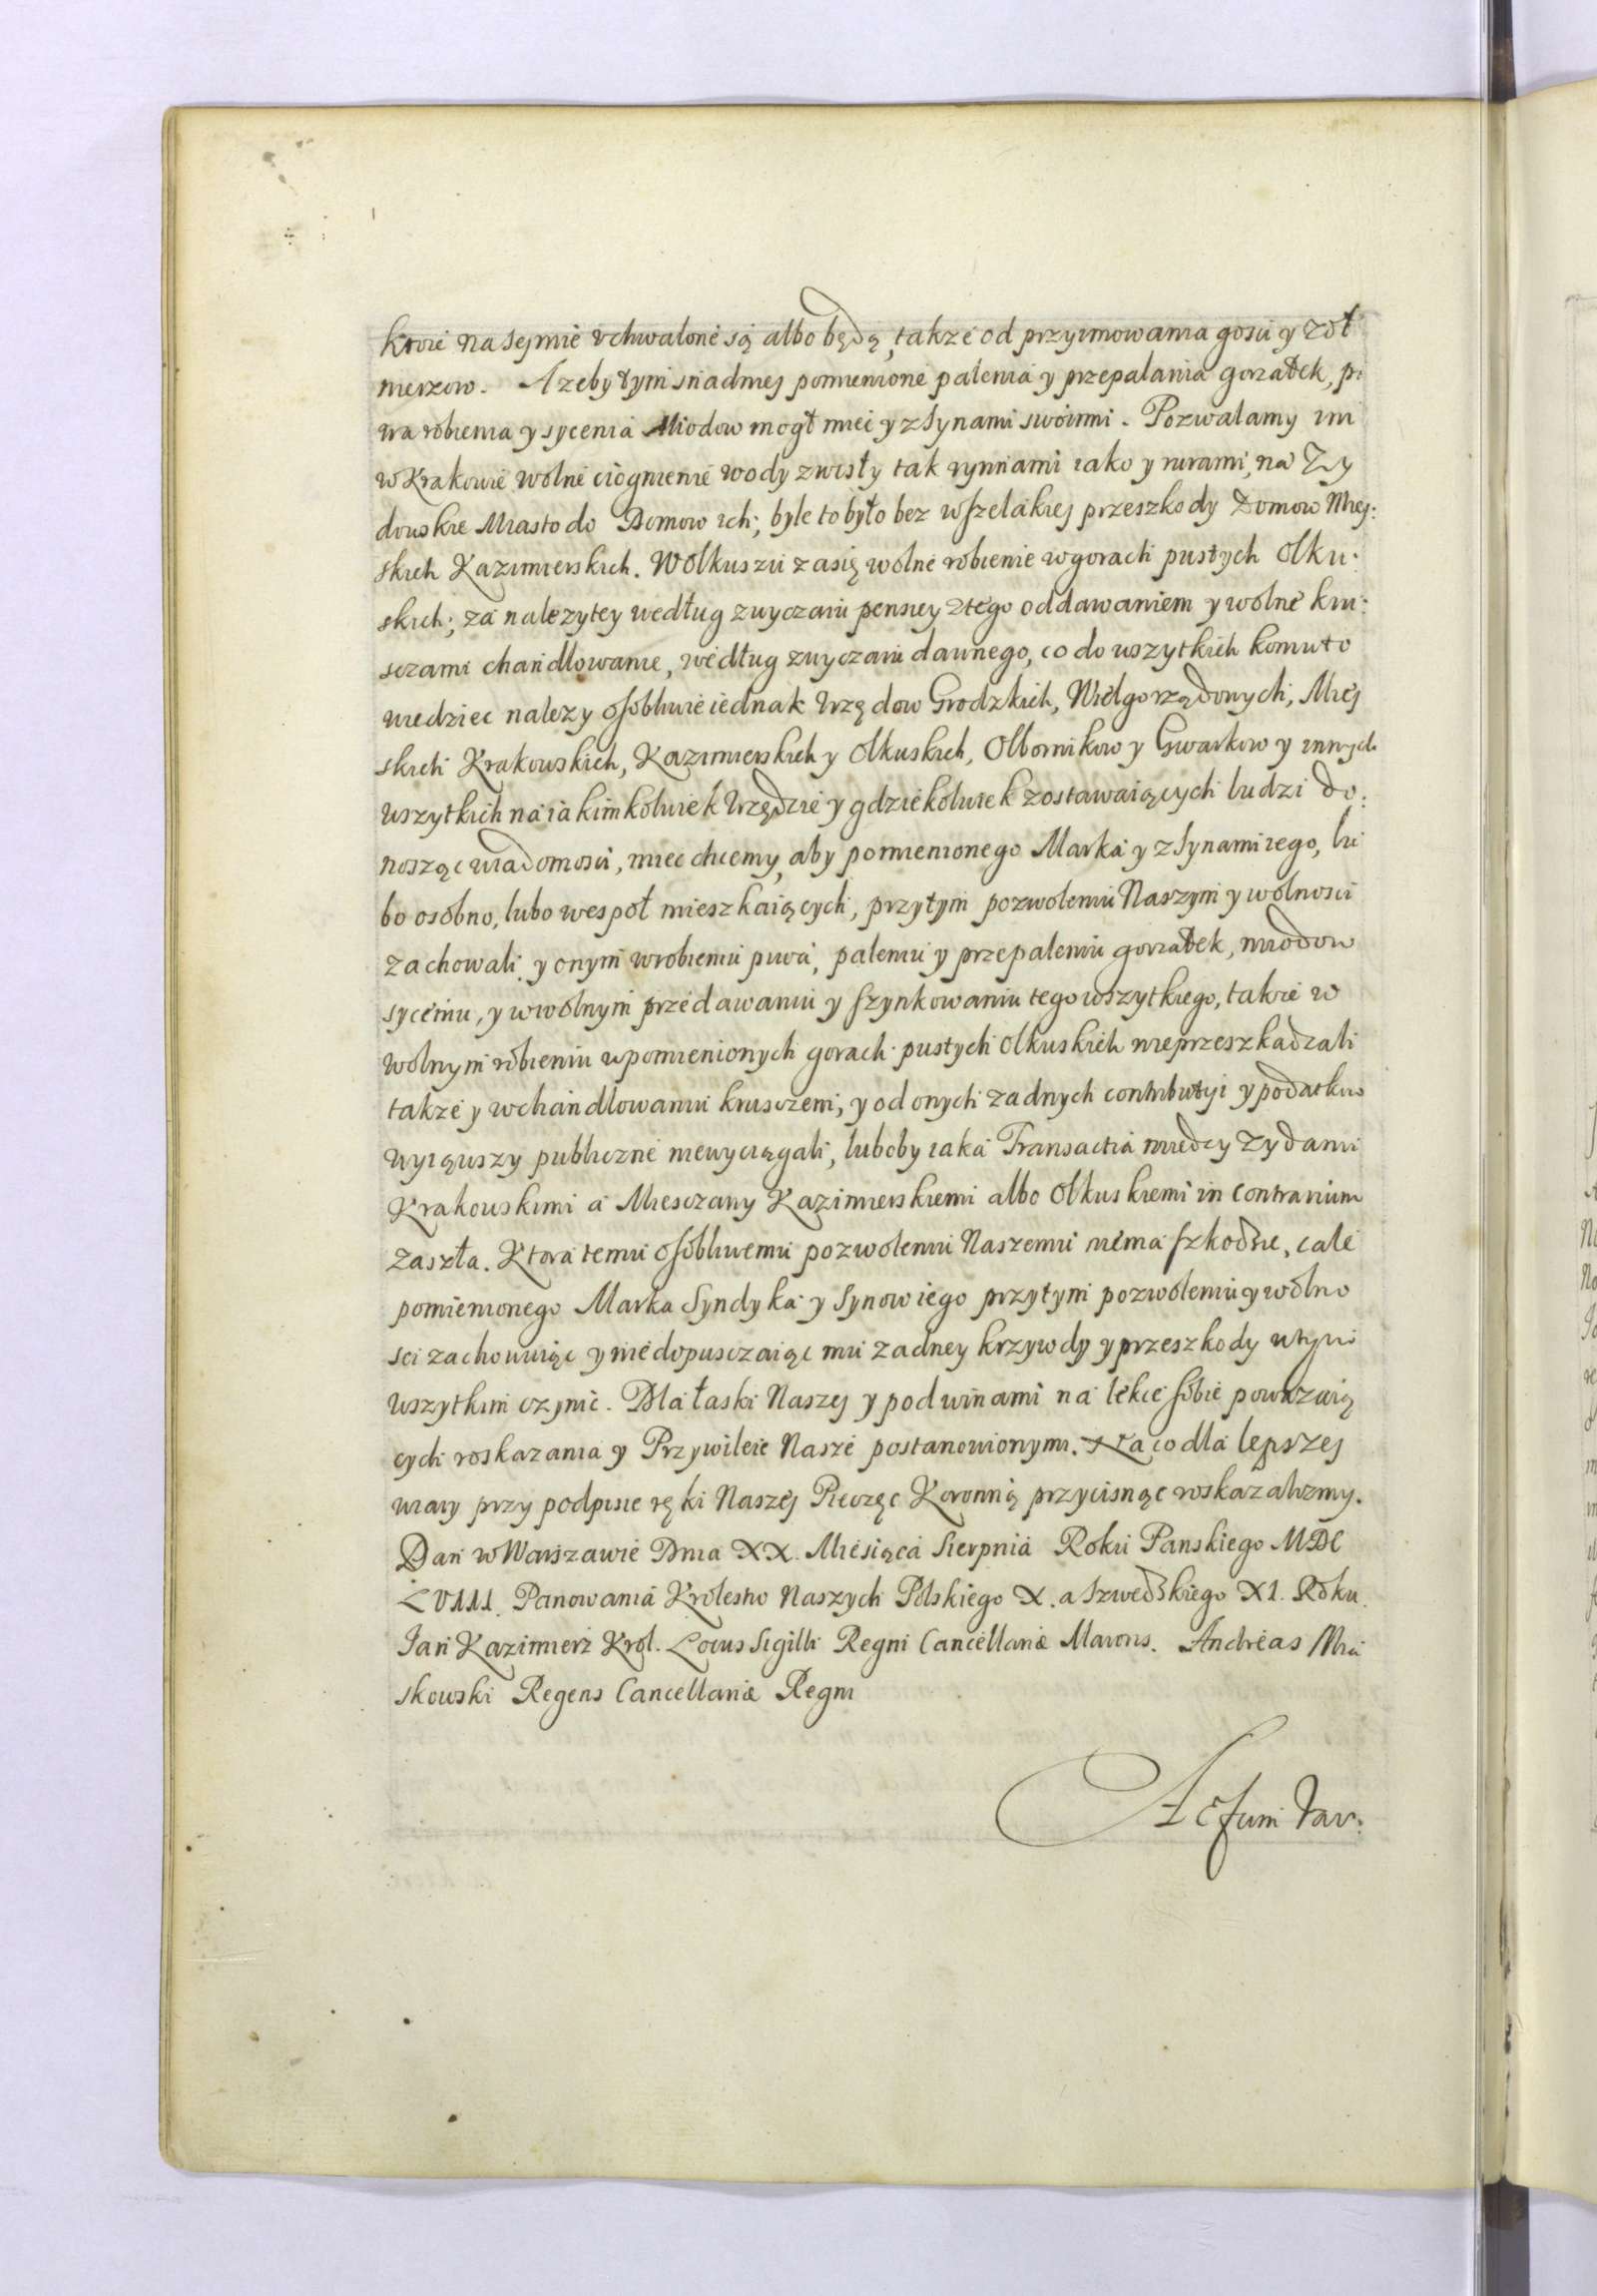 ktore na Sejmie uchwalone są albo będą, także od przyimowania gosci y zoł
nierzow. A zeby tym snadniej pomienione palenia y przepalania gorzałek, pi
wa robienia y sycenia Miodow mogł miec y z Synami swoimi. Pozwalamy im
w Krakowie wolne ciognienie wody z wisły tak rynnami iako y rurami, na Zy
dowskie Miasto do Domow ich; byle to było bez wszelakiej przeszkody Domow Miej:
skich Kazimierskich. W Olkuszu zasię wolne robienie w gorach pustych Olku:
skich; za nalezytey według zwyczaiu pensiey z tego oddawaniem y wolne kru:
sczami chandlowanie, według zwyczaiu dawnego, co do wszytkich komu to
wiedziec nalezy osobliwie iednak Urzędow Grodzkich, Wielgorządowych, Miej
skich Krakowskich, Kazimierskich y Olkuskich, Olbornikow y Gwarkow y innych
wszytkich na iakimkolwiek Urzędzie y gdziekolwiek zostawaiących ludzi do:
nosząc wiadomosci, miec chcemy, aby pomienionego Marka y z Synami iego, lu
bo osobno, lubo wespoł mieszkaiących, przy tym pozwoleniu Naszym y wolnosci
zachowali y onym w robieniu piwa, paleniu y przepaleniu gorzałek, miodow
syceniu, y w wolnym przedawaniu y szynkowaniu tego wszytkiego, takze w
wolnym robieniu w pomienionych gorach pustych Olkuskich nieprzeszkadzali
takze y w chandlowaniu krusczem, y od onych zadnych contributyi y podatkow
wyiąwszy publiczne niewyciągali, luboby iaka Transactia miedzy Zydami
Krakowskimi a Miesczany Kazimierskiemi albo Olkuskiemi in contrarium
zaszła. Ktora temu osobliwemu pozwoleniu Naszemu niema szkodzic, cale
pomienionego Marka Syndyka y Synow iego przy tym pozwoleniu y wolno
sci zachowuiąc y niedopusczaiąc mu zadney krzywdy y przeszkody w tym
wszytkim czynic. Dla łaski Naszej y pod winami na lekce sobie powazaią
cych roskazania y Przywileie Nasze postanowionymi. Na co dla lepszej
wiary przy podpisie ręki Naszej Pieczęc Koronną przycisnąc roskazalismy.
Dan w Warszawie Dnia XX. Miesiąca Sierpnia Roku Panskiego MDC
LVIII. Panowania Krolestw Naszych Polskiego X. a Szwedskiego XI. Roku.
Jan Kazimierz Krol. Locus Sigilli Regni Cancellariæ Maioris. Andreas Mia
skowski Regens Cancellariæ Regni
Actum